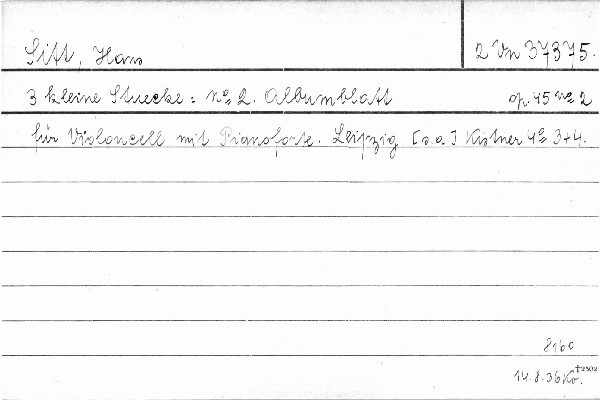 Sitt, Hans 2 Vn 37375.
3 kleine Stuecke: No 2. Albumblatt op. 45 No 2
für Violoncell mit Pianoforte. Leipzig [s.a.] Kistner 4o 3+4.
816c
†2502
14.8.36 Ko.